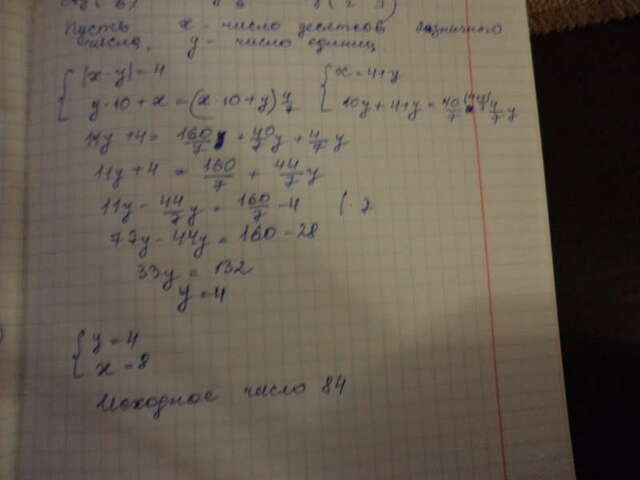 Пусть x - число десятков 2значного
числа, y - число единиц
{ |x-y|=4 { x=4+y
y·10+x=(x·10+y) 4/7 10y+4+y= 40/7 (4+y) 4/7 y
11y+4= 160/7 + 40/7 y + 4/7 y
11y+4 = 160/7 + 44/7 y
11y - 44/7 y = 160/7 - 4 (·7
77y-44y = 160-28
33y = 132
y=4
{ y=4
x=8
Исходное число 84